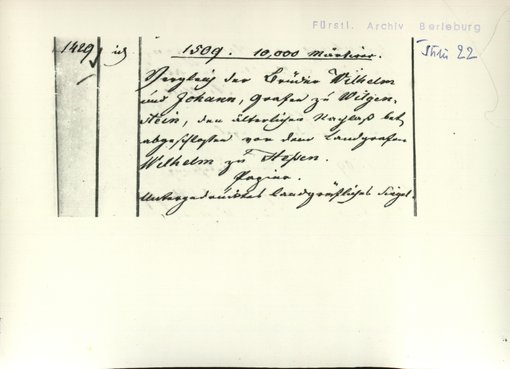 Fürstl. Archiv Berleburg
22
1429
1509. 10,000 Märtirer.
Vergleich der Brüder Wilhelm
und Johann, Grafen zu Witgen-
stein, den älterlichen Nachlaß betr.
abgeschlossen vor dem Landgrafen
Wilhelm zu Hessen.
Papier.
Untergedrücktes landgräfliches Siegel.